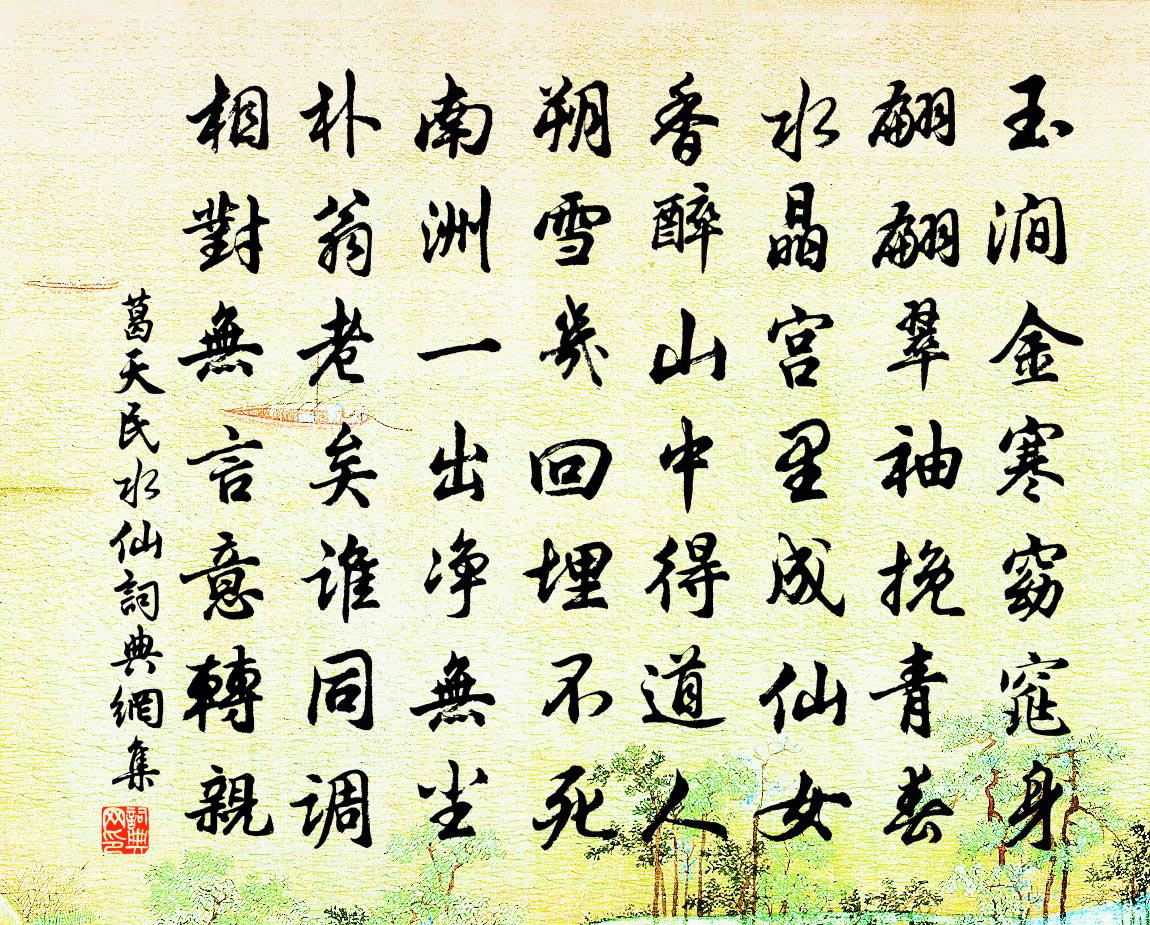 玉涧金寒窈窕身
翩翩翠袖挽青春
水晶宫里成仙女
香醉山中得道人
朔雪幾回埋不死
南洲一出净無尘
朴翁老矣谁同调
相對無言意轉親
葛天民水仙詞典網集
詞典网印